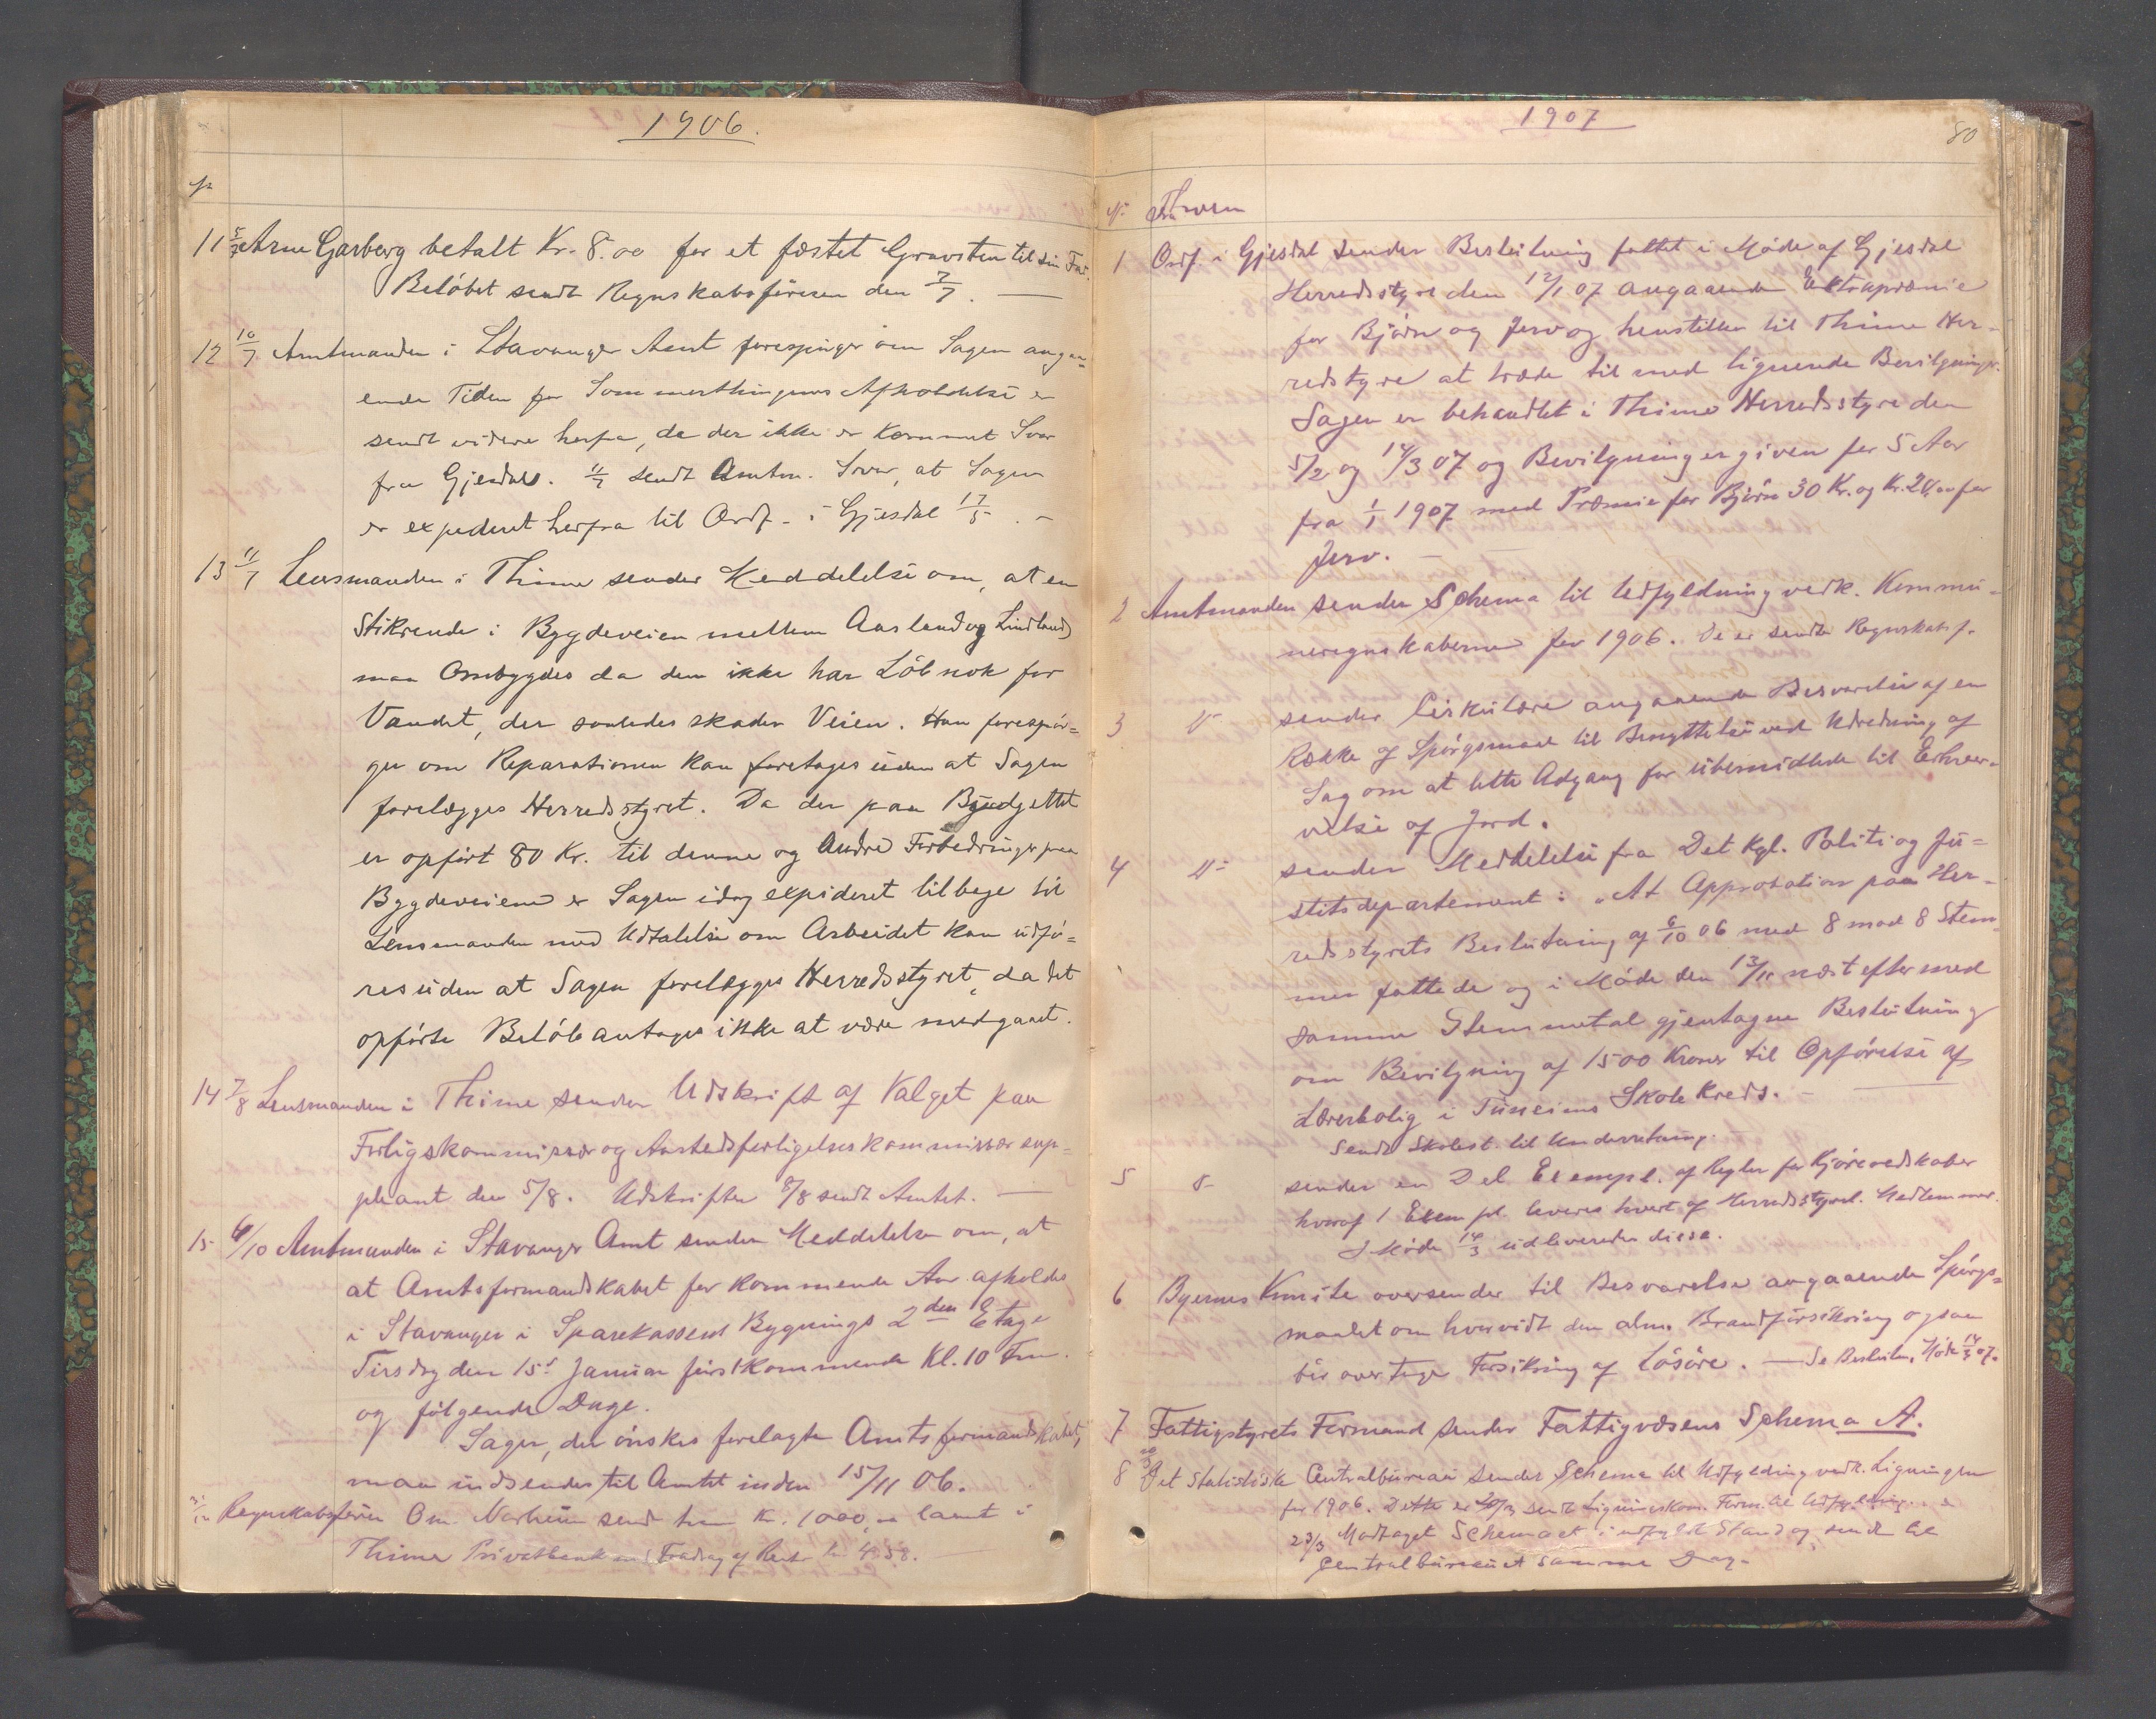 1906.
No
11 5/7 Arne Garborg betalt Kr. 8.00 for et fæstet Gravsten til sin Far.
Beløbet sendt Regnskabsføreren den 7/7. —
12 10/7 Amtmanden i Stavanger Amt forespørger om Sagen angaa-
ende Tiden for Sommerthingenes Afholdelse er
sendt videre herfra, da der ikke er kommet Svar
fra Gjesdal. 11/7 sendt Amtm. Svar, at Sagen
er expederet herfra til Ordf. i Gjesdal 17/5. —
13 11/7 Lensmanden i Thime sender Meddelelse om, at en
Stikrende i Bygdeveien mellem Aasland og Lindland
maa Ombygdes da den ikke har Løb nok for
Vandet, der saaledes skader Veien. Han forespør-
ger om Reparationen kan foretages uden at Sagen
forelægges Herredsstyret. Da der paa Budgettet
er opført 80 Kr. til denne og Andre Forbedringer paa
Bygdeveiene er Sagen idag expideret tilbage til
Lensmanden med Udtalelse om Arbeidet kan udfø-
res uden at Sagen forelægges Herredsstyret, da det
opførte Beløb antages ikke at være medgaaet.
14 7/8 Lensmanden i Thime sender Udskrift af Valget paa
Forligskommissær og Aastedsforligelseskommissær sup-
pleant den 5/8. Udskriften 8/8 sendt Amtet. —
15 6/10 Amtmanden i Stavanger Amt sender Meddelelse om, at
at Amtsformandskabet for kommende Aar afholdes
i Stavanger i Sparekassens Bygnings 2den Etage
Tirsdag den 15de Januar førstkommende Kl. 10 Fm.
og følgende Dage.
Sager, der ønskes forelagte Amtsformandskabet,
maa indsendes til Amtet inden 15/11 06.
Regnskabsfører Om. Norheim sendt Kr. 1000,00 laant i
Thime Privatbank Fradrag af Rente Kr 4.58.
1907
80
No Fra hvem
1 Ordf. i Gjesdal sender Beslutning fattet i Møde af Gjesdal
Herredsstyre den 12/1 07 angaaende Extrapræmie
for Bjørn og Jerv og henstiller til Thime Her-
redstyre at træde til med lignende Bevilgning.
Sagen er behandlet i Thime Herredsstyre den
5/2 og 14/3 07 og Bevilgning er given for 5 Aar
fra 1/1 1907 med Præmie for Bjørn 30 Kr. og Kr. 20,00 for
Jerv. —
2 Amtmanden sender Schema til Udfyldning vedk. Kommu-
neregnskaberne for 1906. De er sendt Regnskabsf.
3 Do sender Cirkulære angaaende Besvarelse af en
Række af Spørgsmaal til Benyttelse ved Udredning af
Sag om at lette Adgang for ubemidlede til Erhver-
velse af Jord.
4 Do sender Meddelelse fra Det Kgl. Politi og Ju-
stitsdepartement: "At Approbation paa Her-
redsstyrets Beslutning af 6/10 06 med 8 mod 8 Stem-
mer fattede og i Møde den 13/11 næst efter med
samme Stemmetal gjentagne Beslutning
om Bevilgning af 1500 Kroner til Opførelse af
Lærerbolig i Tuneims Skolekreds. —
Sendt Skolest. til Underretning.
5 Do sender en Del Exempl. af Regler for Kjøreredskaber
hvoraf 1 Exempl. leveres hvert af Herredsstyrets Medlemmer.
I Møde 14/3 udleveredes disse.
6 Byernes Komite oversender til Besvarelse angaaende Spørgs-
maalet om hvorvidt den alm. Brandforsikring ogsaa
bør overtage Forsikring af Løsøre. — Se Beslutn. Møde 14/3 07.
7 Fattigstyrets Formand sender Fattigvæsens Schema A.
8 Det statistiske Centralbureau sender Schema til Udfylding vedk. Ligningen
for 1906. Dette er 20/3 sendt Ligningskom. Form. til Udfyldning.
23/3 Modtaget Schemaet i udfyldt Stand og sendt til
Centralbureauet samme Dag.